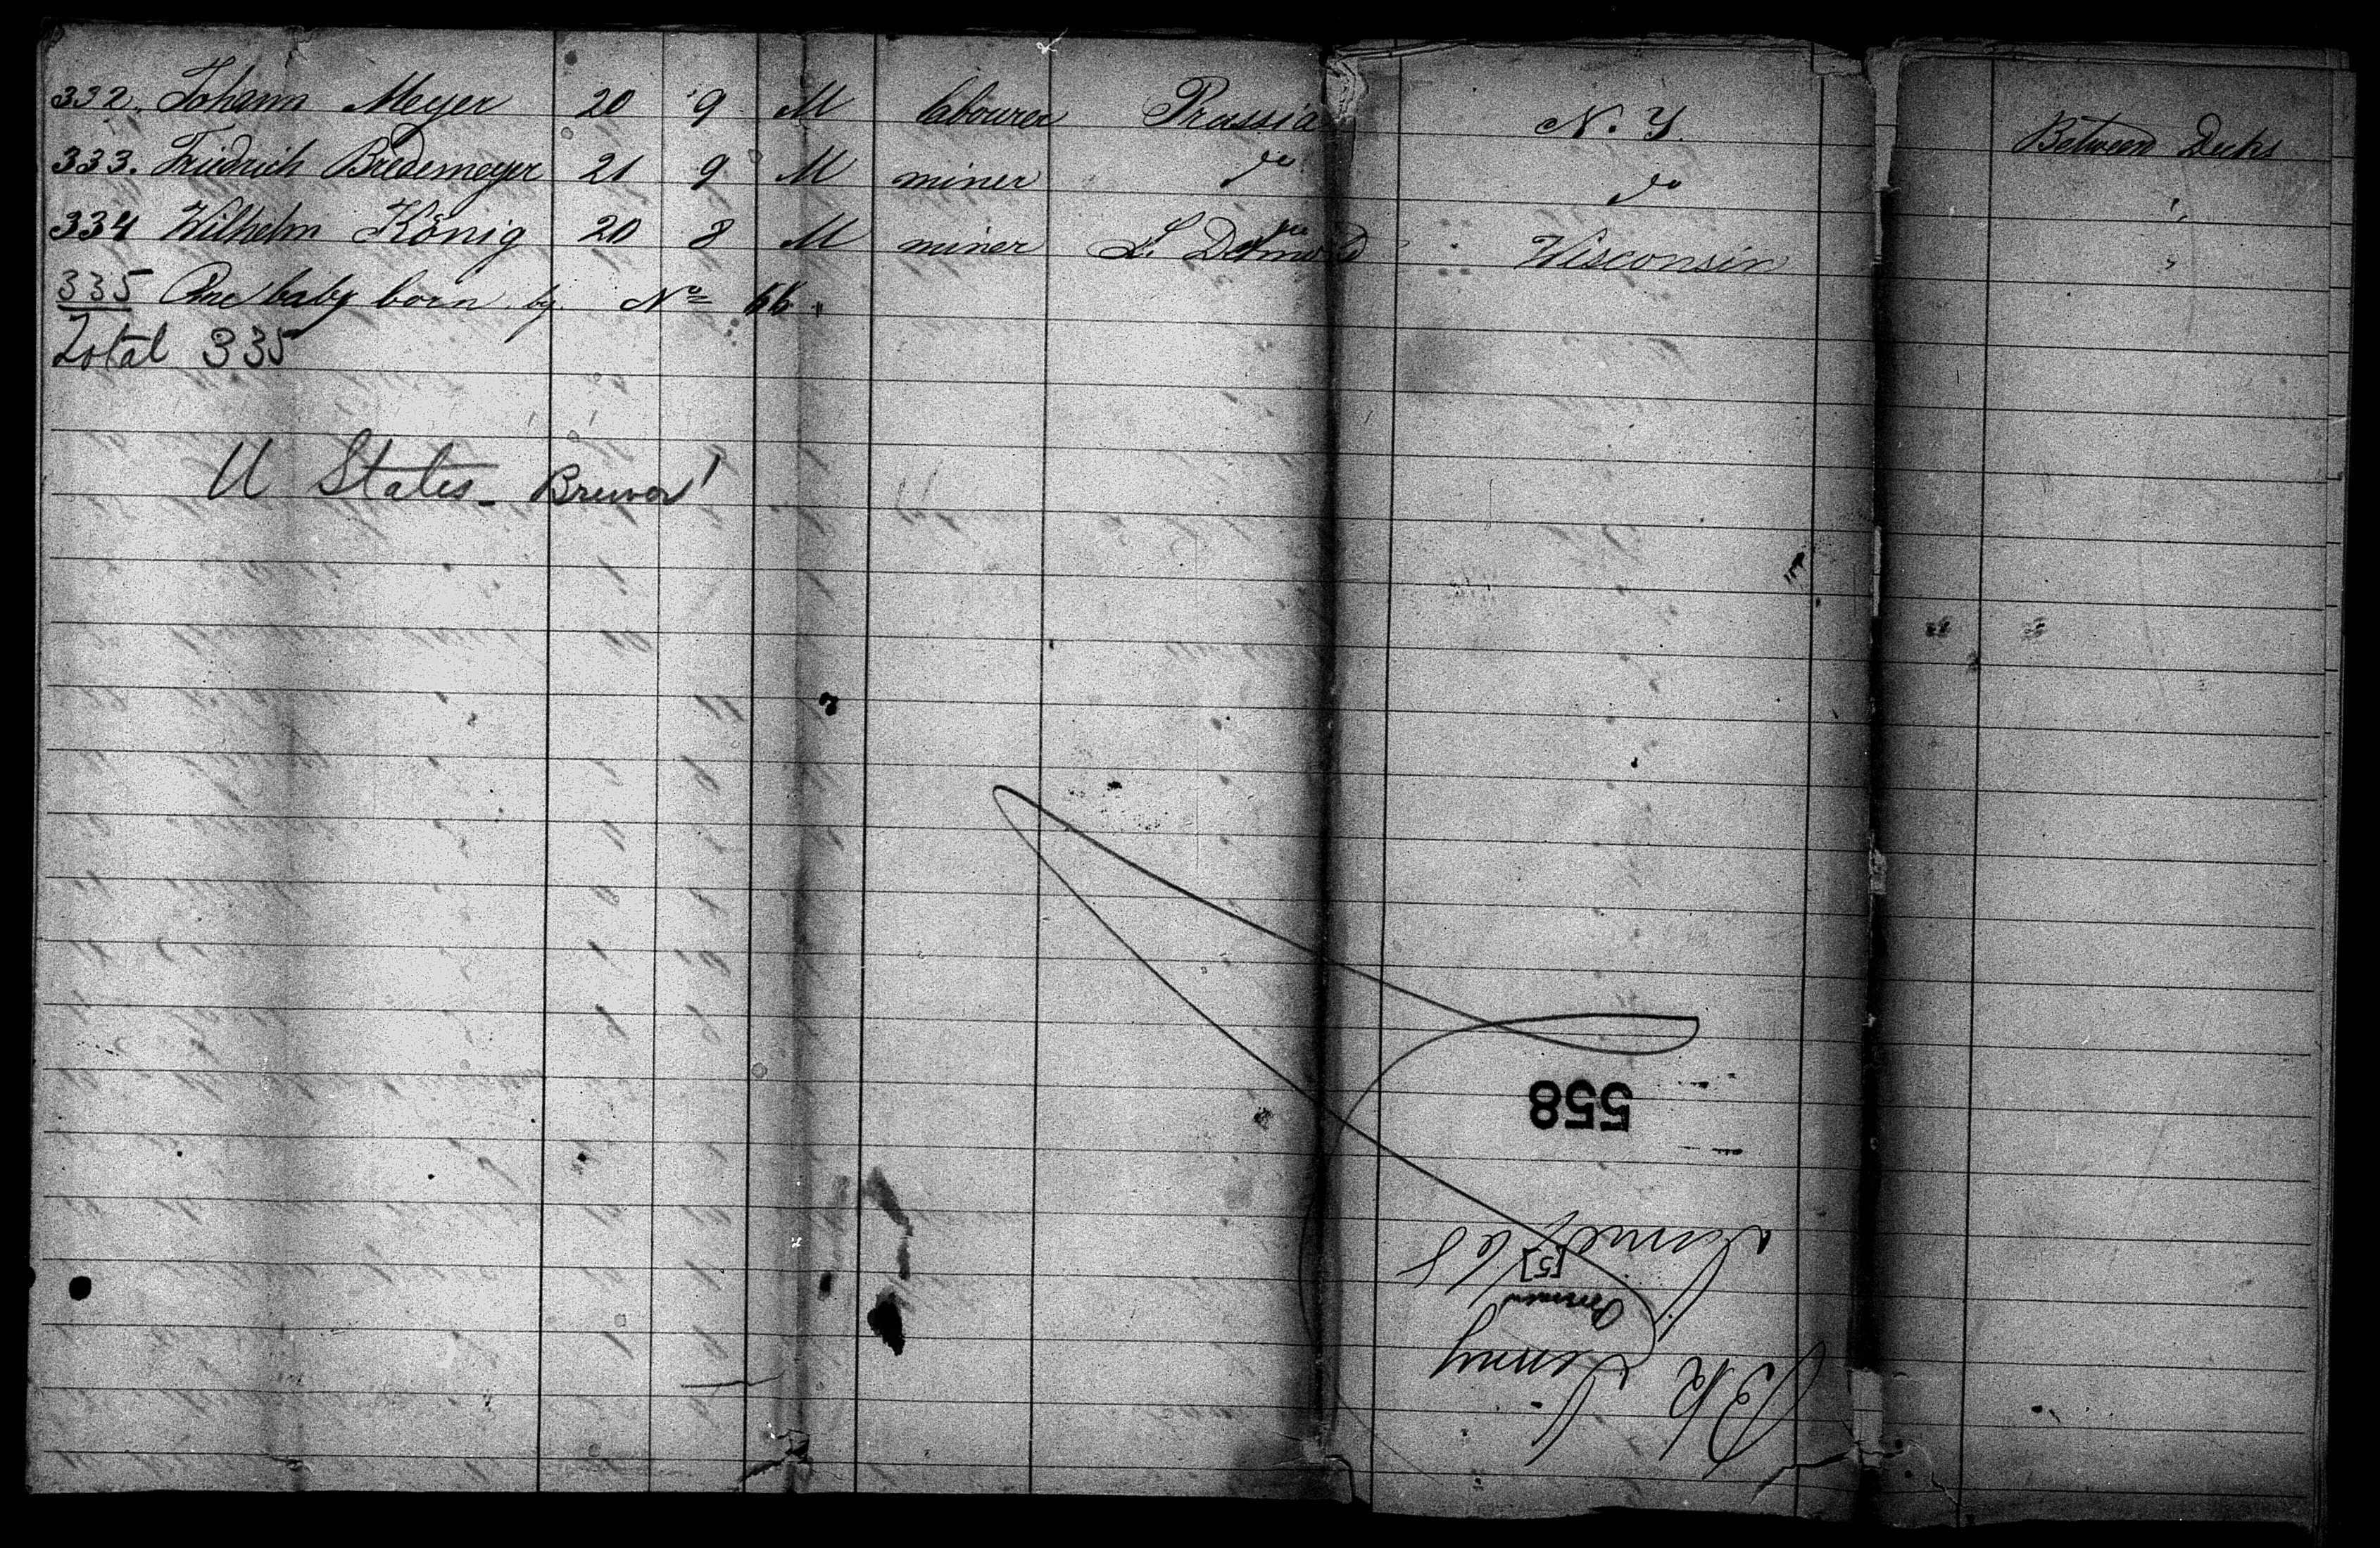 332. Johann Meyer 20 9 M labourer Prussia N. Y. Between Decks
333. Friedrich Bredemeyer 21 9 M miner do do "
334 Wilhelm König 20 8 M miner L. Detmold Wisconsin "
335 One baby born by No 66.
Total 335
U States - Bremen
558
June /68
[5]